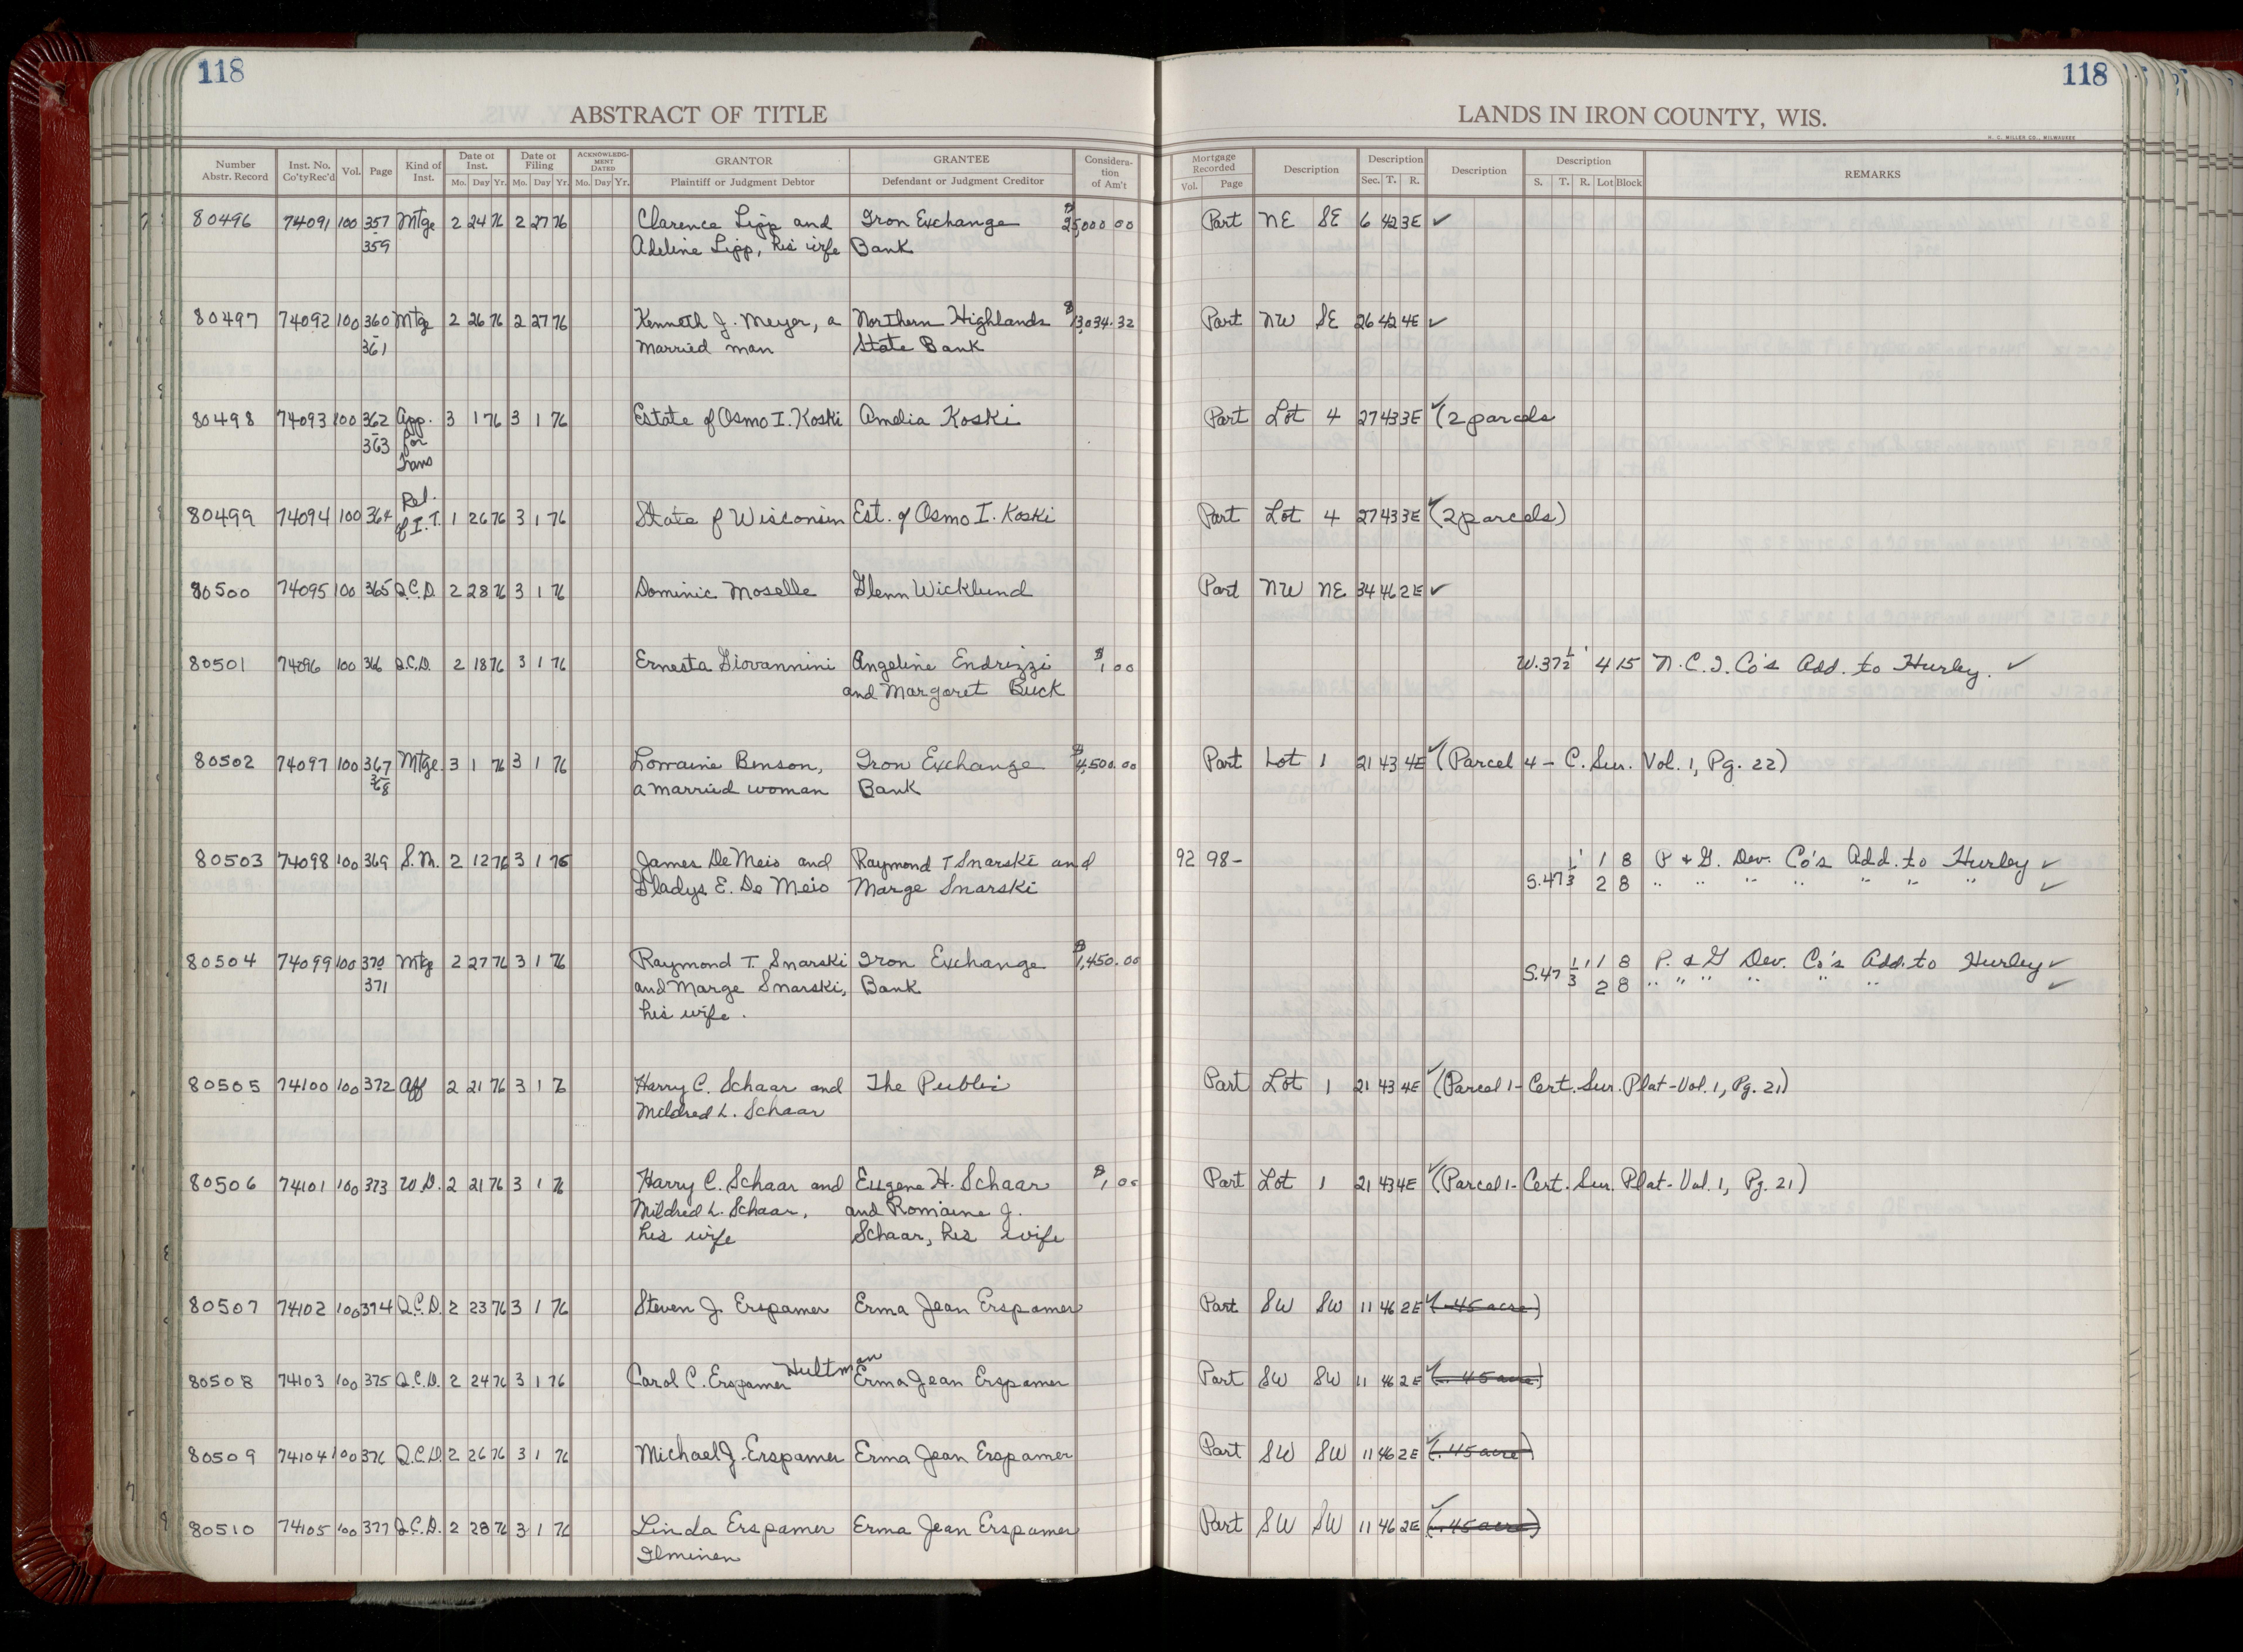 118
118
ABSTRACT OF TITLE
LANDS IN IRON COUNTY, WIS.
H. C. MILLER CO., MILWAUKEE
Number Abstr. Record Inst. No. Co'tyRec'd Vol. Page Kind of Inst. Date of Inst. Mo. Day Yr. Date of Filing Mo. Day Yr. ACKNOWLEDGMENT DATED Mo. Day Yr. GRANTOR Plaintiff or Judgment Debtor GRANTEE Defendant or Judgment Creditor Consideration of Am't Mortgage Recorded Vol. Page Description Description Sec. T. R. Description Description S. T. R. Lot Block REMARKS
80496 74091 100 357 Mtge 2 24 76 2 27 76 Clarence Lipp and Iron Exchange $25,000 00 Part NE SE 6 42 3E ✓
359 Adeline Lipp, his wife Bank
80497 74092 100 360 Mtge 2 26 76 2 27 76 Kenneth J. Meyer, a Northern Highlands $13,034.32 Part NW SE 26 42 4E ✓
361 married man State Bank
80498 74093 100 362 App. 3 1 76 3 1 76 Estate of Osmo I. Koski Amelia Koski Part Lot 4 27 43 3E ✓ (2 parcels
363 for
Trans
Rel.
80499 74094 100 364 of I.T. 1 26 76 3 1 76 State of Wisconsin Est. of Osmo I. Koski Part Lot 4 27 43 3E ✓ (2 parcels)
80500 74095 100 365 Q.C.D. 2 28 76 3 1 76 Dominic Moselle Glenn Wicklund Part NW NE 34 46 2E ✓
80501 74096 100 366 Q.C.D. 2 18 76 3 1 76 Ernesta Giovannini Angeline Endrizzi $1,00 W.37½' 4 15 N.C.I. Co's Add. to Hurley. ✓
and Margaret Buck
80502 74097 100 367 Mtge. 3 1 76 3 1 76 Lorraine Benson, Iron Exchange $4,500.00 Part Lot 1 21 43 4E ✓ (Parcel 4 - C. Sur. Vol. 1, Pg. 22)
368 a married woman Bank
80503 74098 100 369 S.M. 2 12 76 3 1 76 James De Meio and Raymond T Snarski and 92 98- 1 8 P & G. Dev. Co's Add. to Hurley ✓
Gladys E. De Meio Marge Snarski S.47⅓' 2 8 " " " " " " " ✓
80504 74099 100 370 Mtg 2 27 76 3 1 76 Raymond T. Snarski Iron Exchange $1,450.00 1 8 P. & G Dev. Co's Add. to Hurley ✓
371 and Marge Snarski, Bank S.47⅓' 2 8 " " " " " " ✓
his wife.
80505 74100 100 372 Aff 2 21 76 3 1 76 Harry C. Schaar and The Public Part Lot 1 21 43 4E ✓ (Parcel 1- Cert. Sur. Plat-Vol. 1, Pg. 21)
Mildred L. Schaar
80506 74101 100 373 W.D. 2 21 76 3 1 76 Harry C. Schaar and Eugene H. Schaar $1,00 Part Lot 1 21 43 4E ✓ (Parcel 1- Cert. Sur. Plat-Vol. 1, Pg. 21)
Mildred L. Schaar, and Romaine J.
his wife Schaar, his wife
80507 74102 100 374 Q.C.D. 2 23 76 3 1 76 Steven J. Erspamer Erma Jean Erspamer Part SW SW 11 46 2E ✓ (.45 acre)
Hultman
80508 74103 100 375 Q.C.D. 2 24 76 3 1 76 Carol C. Erspamer Erma Jean Erspamer Part SW SW 11 46 2E ✓ (.45 acre)
80509 74104 100 376 Q.C.D. 2 26 76 3 1 76 Michael J. Erspamer Erma Jean Erspamer Part SW SW 11 46 2E ✓ (.45 acre)
80510 74105 100 377 Q.C.D. 2 28 76 3 1 76 Linda Erspamer Erma Jean Erspamer Part SW SW 11 46 2E ✓ (.45 acre)
Ilminen